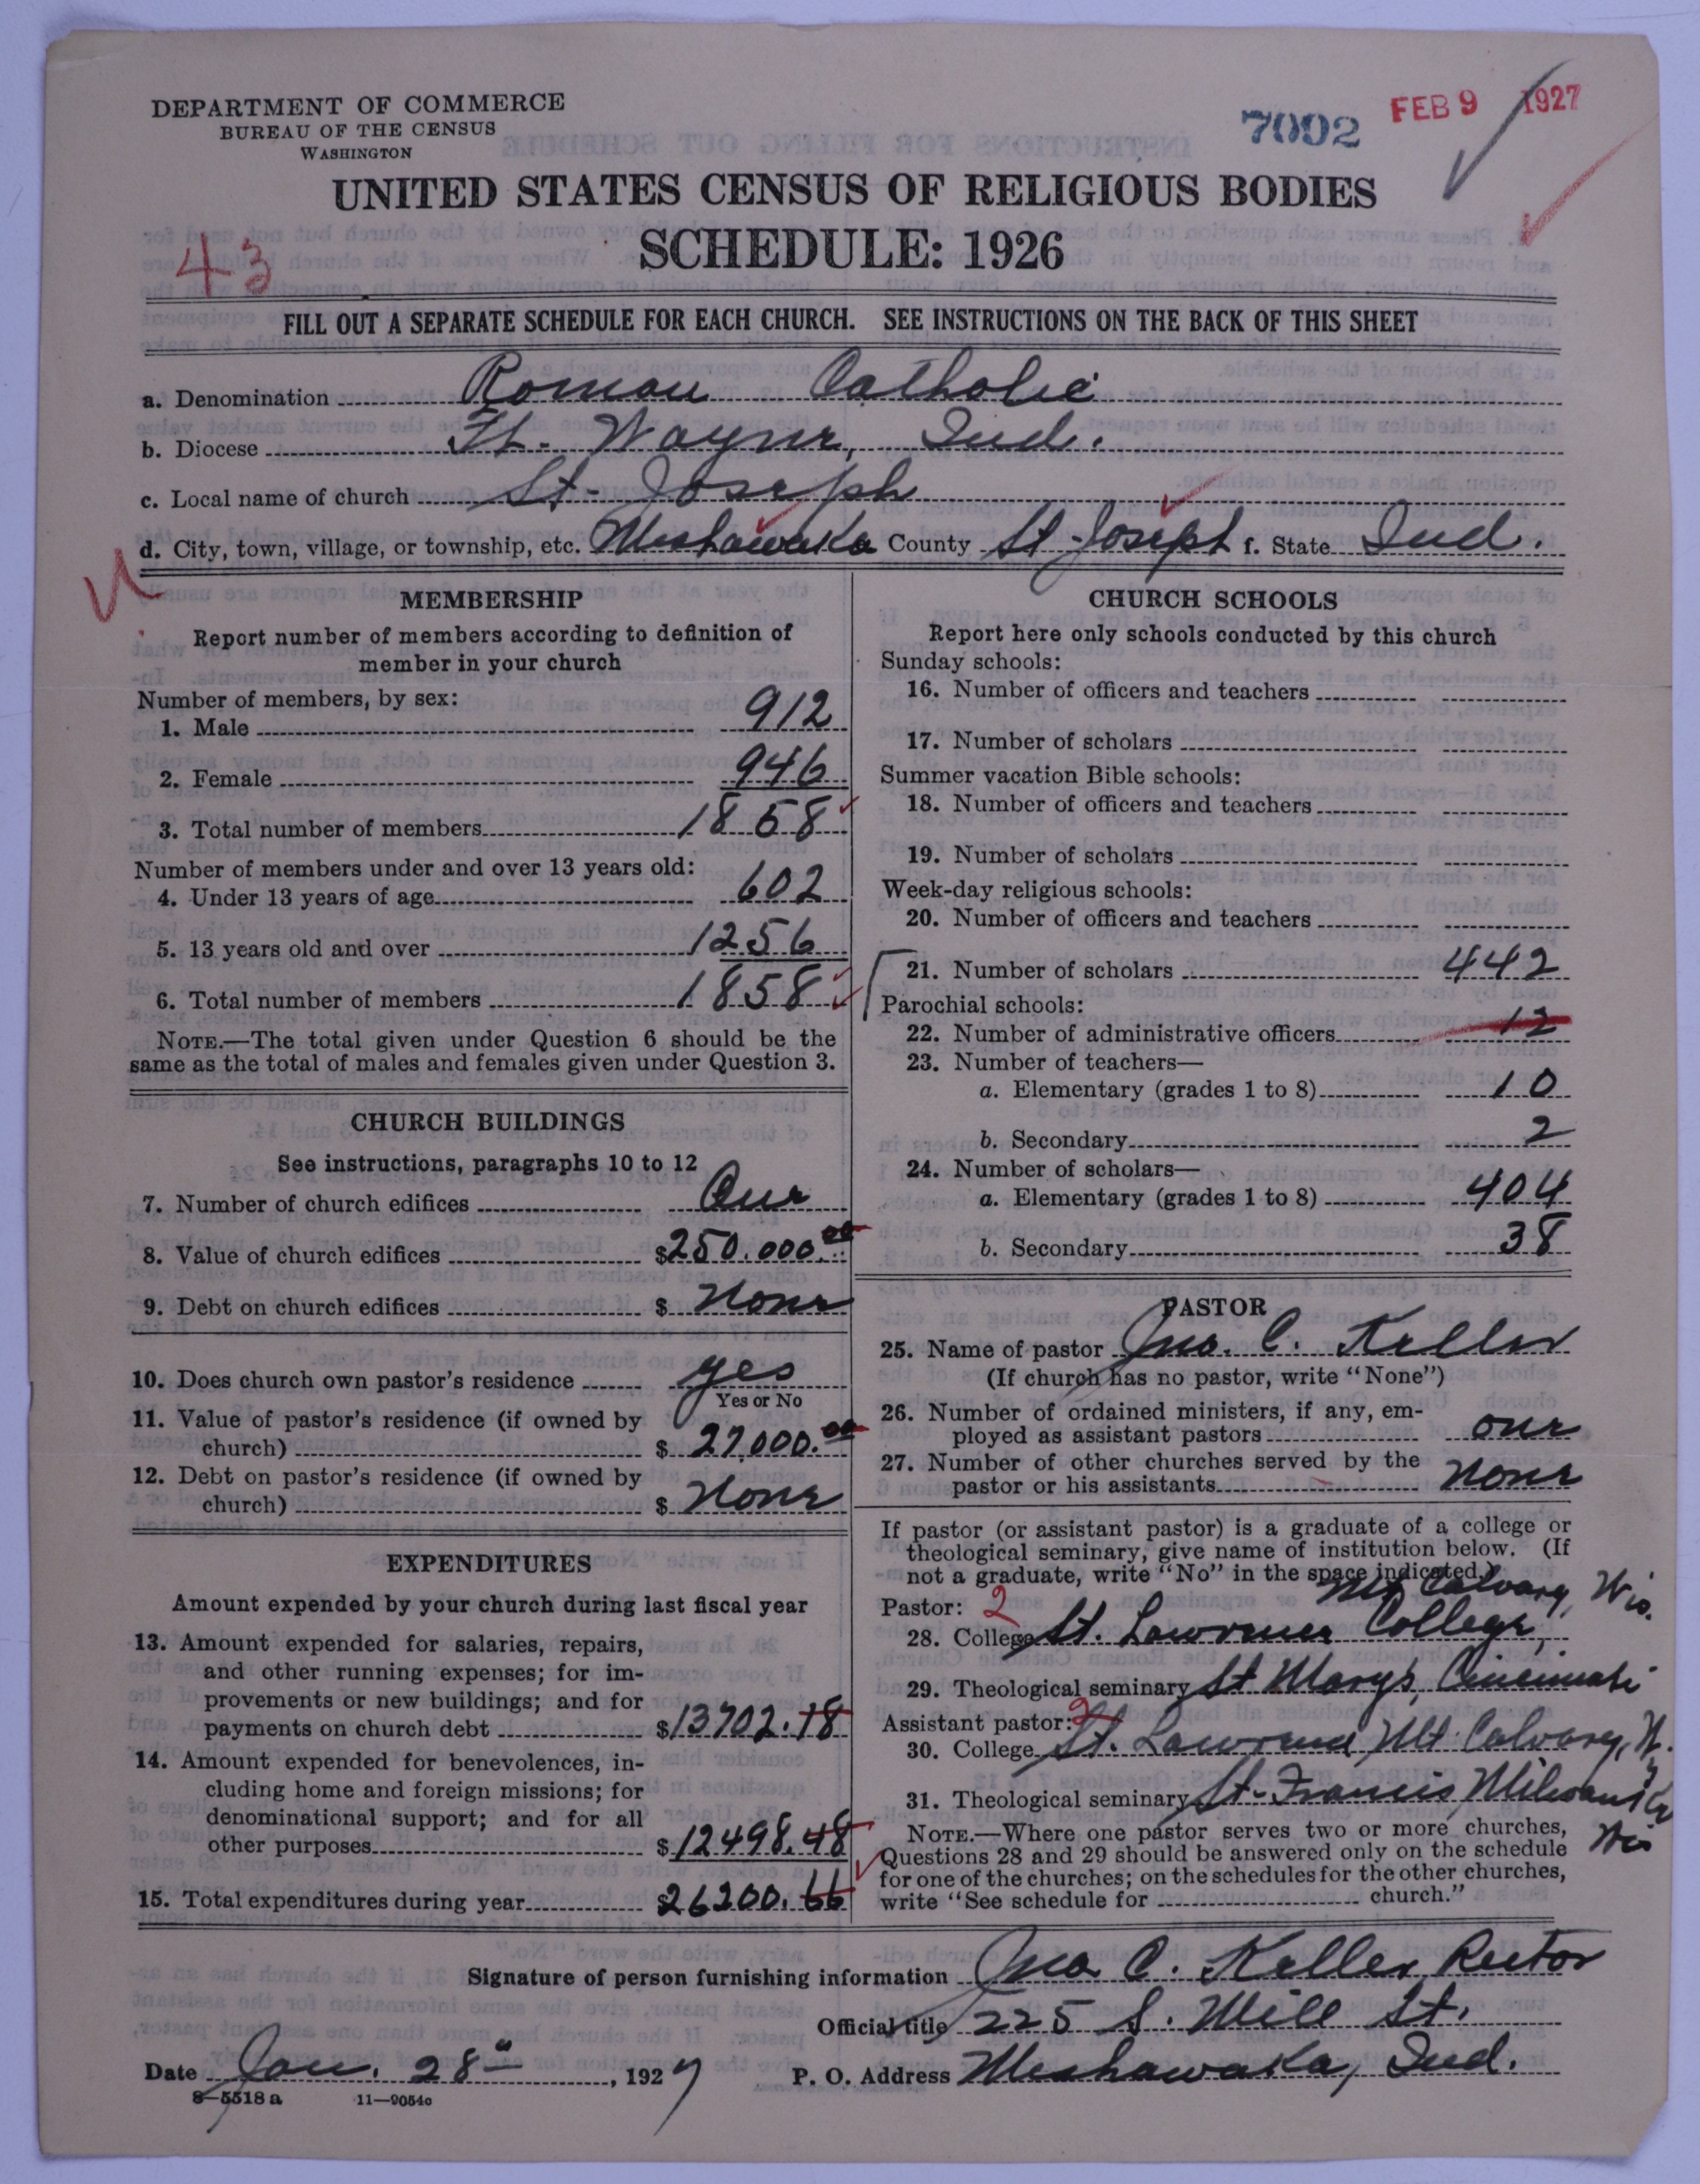 DEPARTMENT OF COMMERCE
BUREAU OF THE CENSUS
WASHINGTON
7002
FEB 9 1927
UNITED STATES CENSUS OF RELIGIOUS BODIES
SCHEDULE: 1926
43
FILL OUT A SEPARATE SCHEDULE FOR EACH CHURCH. SEE INSTRUCTIONS ON THE BACK OF THIS SHEET
a. Denomination Roman Catholic
b. Diocese Ft. Wayne, Ind.
c. Local name of church St. Joseph
d. City, town, village, or township, etc. Mishawaka County St. Joseph f. State Ind.
MEMBERSHIP
Report number of members according to definition of
member in your church
Number of members, by sex:
1. Male 912
2. Female 946
3. Total number of members 1858
Number of members under and over 13 years old:
4. Under 13 years of age 602
5. 13 years old and over 1256
6. Total number of members 1858
NOTE.—The total given under Question 6 should be the
same as the total of males and females given under Question 3.
CHURCH BUILDINGS
See instructions, paragraphs 10 to 12
7. Number of church edifices One
8. Value of church edifices $250.000.00
9. Debt on church edifices $ None
10. Does church own pastor's residence yes
Yes or No
11. Value of pastor's residence (if owned by
church) $ 27000.00
12. Debt on pastor's residence (if owned by
church) $ None
EXPENDITURES
Amount expended by your church during last fiscal year
13. Amount expended for salaries, repairs,
and other running expenses; for im-
provements or new buildings; and for
payments on church debt $13702.18
14. Amount expended for benevolences, in-
cluding home and foreign missions; for
denominational support; and for all
other purposes $12498.48
15. Total expenditures during year $26200.66
CHURCH SCHOOLS
Report here only schools conducted by this church
Sunday schools:
16. Number of officers and teachers
17. Number of scholars
Summer vacation Bible schools:
18. Number of officers and teachers
19. Number of scholars
Week-day religious schools:
20. Number of officers and teachers
21. Number of scholars 442
Parochial schools:
22. Number of administrative officers 12
23. Number of teachers—
a. Elementary (grades 1 to 8) 10
b. Secondary 2
24. Number of scholars—
a. Elementary (grades 1 to 8) 404
b. Secondary 38
PASTOR
25. Name of pastor Jno. C. Keller
(If church has no pastor, write "None")
26. Number of ordained ministers, if any, em-
ployed as assistant pastors one
27. Number of other churches served by the
pastor or his assistants None
If pastor (or assistant pastor) is a graduate of a college or
theological seminary, give name of institution below. (If
not a graduate, write "No" in the space indicated.)
Mt Calvary, Wis.
Pastor: 2
28. College St. Lawrence College,
29. Theological seminary St Marys, Cincinnati
Assistant pastor: 2
30. College St. Lawrence Mt Calvary, W.
31. Theological seminary St. Francis, Milwaukee
Wis
NOTE.—Where one pastor serves two or more churches,
Questions 28 and 29 should be answered only on the schedule
for one of the churches; on the schedules for the other churches,
write "See schedule for church."
Signature of person furnishing information Jno C. Keller, Rector
Official title 225 S. Mill St.
Date Jan. 28, 1927 P. O. Address Mishawaka, Ind.
8—5518 a 11—9054c